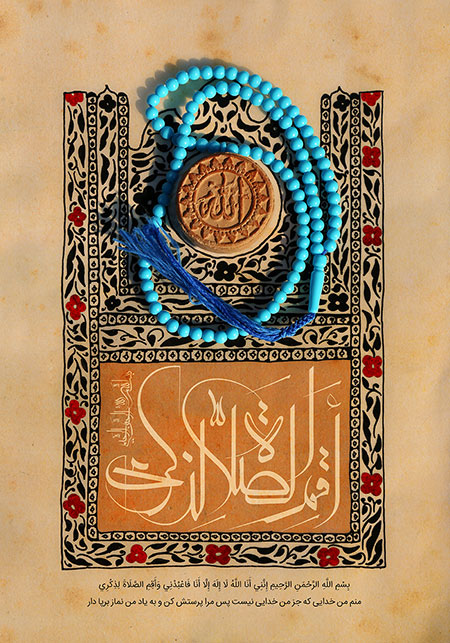 الله
أقم الصلاة لذکری
بِسْمِ اللَّهِ الرَّحْمَنِ الرَّحِيمِ إِنَّنِي أَنَا اللَّهُ لَا إِلَهَ إِلَّا أَنَا فَاعْبُدْنِي وَأَقِمِ الصَّلَاةَ لِذِكْرِي
منم من خدایی که جز من خدایی نیست پس مرا پرستش کن و به یاد من نماز برپا دار